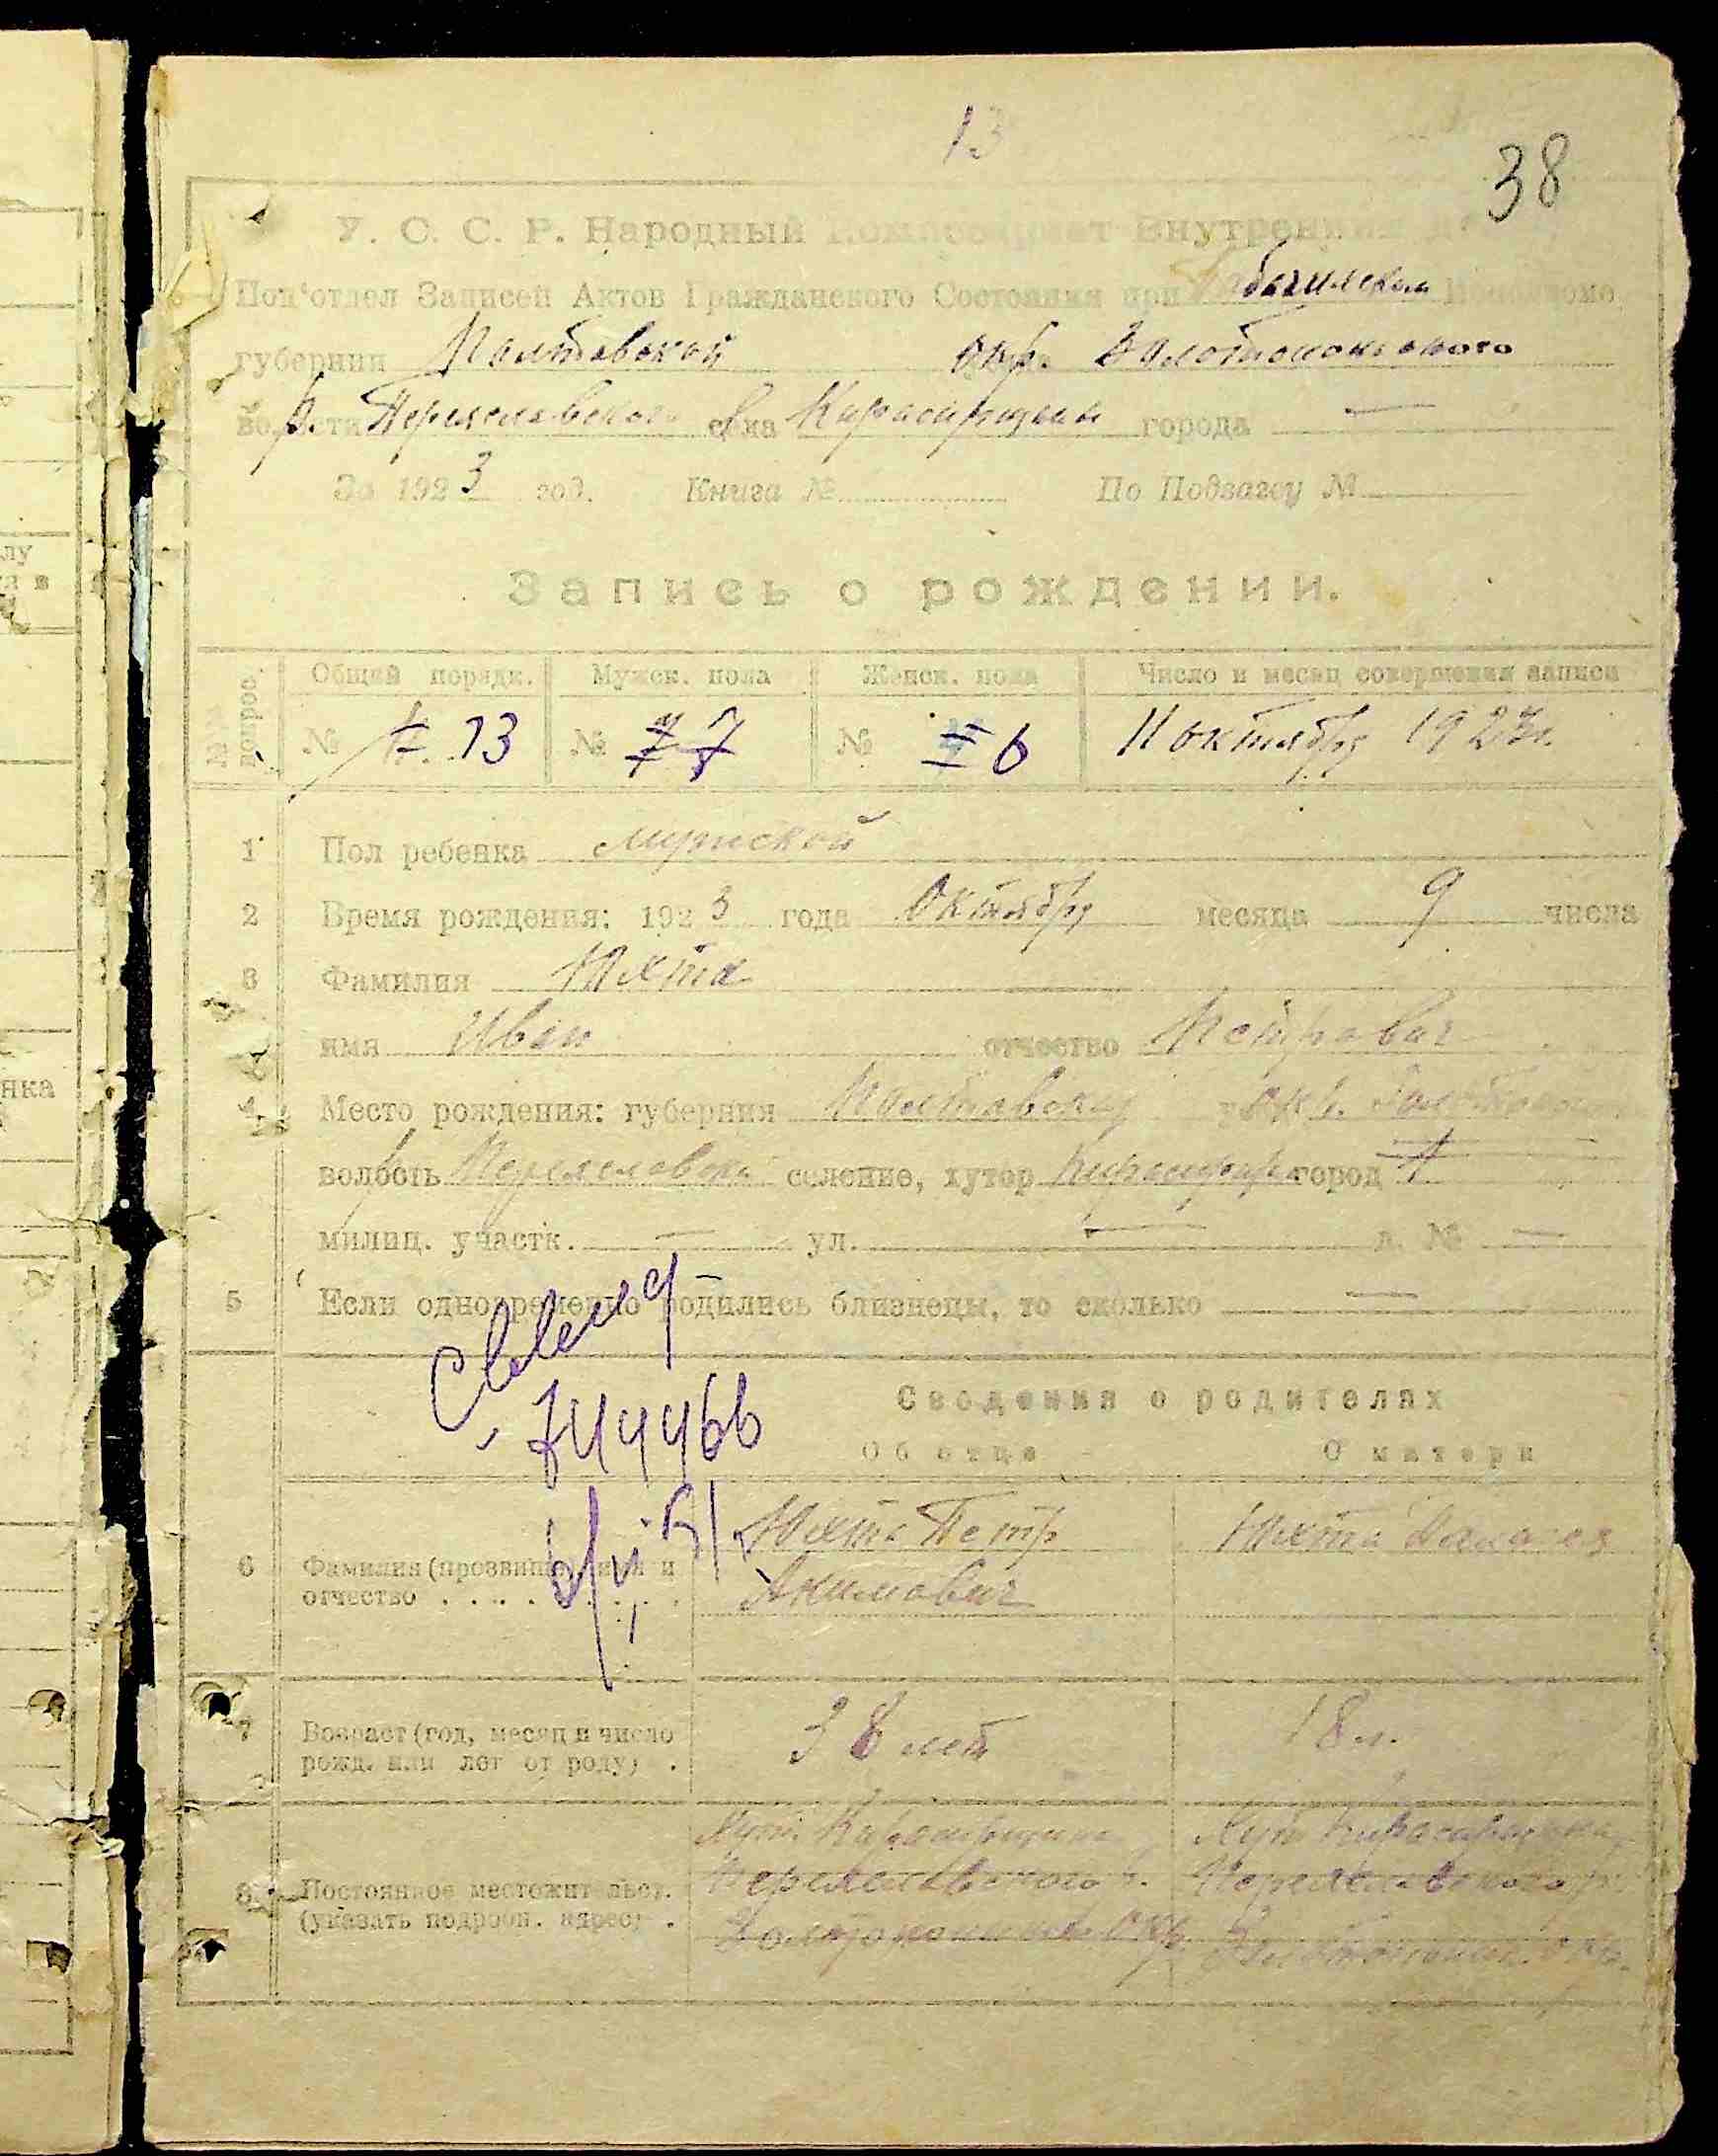 13
38
У. С. С. Р. Народный Комиссариат Внутренних
Под'отдел Записей Актов Гражданского Состояния при Исполкоме
губернии Полтавской окр. Золотоношского
р. Переяславского села города —
За 1923 год. Книга № По Подзагсу №
Запись о рождении.
№№ вопрос. Общий порядк. Мужск. пола Женск. пола Число и месяц совершения записи
№ 13 № 7 № 6 11 октября 1923 г.
1 Пол ребенка мужской
2 Время рождения: 1923 года Октября месяца 9 числа
3 Фамилия Юхта
имя Иван отчество Петрович
4 Место рождения: губерния Полтавская окр. Золотонош.
волость Переяславска селение, хутор город
милиц. участк. — ул. — д. № —
5 Если одновременно родились близнецы, то сколько —
744466
Сведения о родителях
Об отце О матери
6 Фамилия (прозвище), имя и Юхта Петр Юхта
отчество . . . . . . . . Акимович
7 Возраст (год, месяц и число
рожд. или лет от роду) . 38 лет 18 л.
Хут. Хут.
8 Постоянное местожительст. Переяславского р. Переяславского р.
(указать подробн. адрес) . Золотоношск. Окр. Золотоношск. окр.